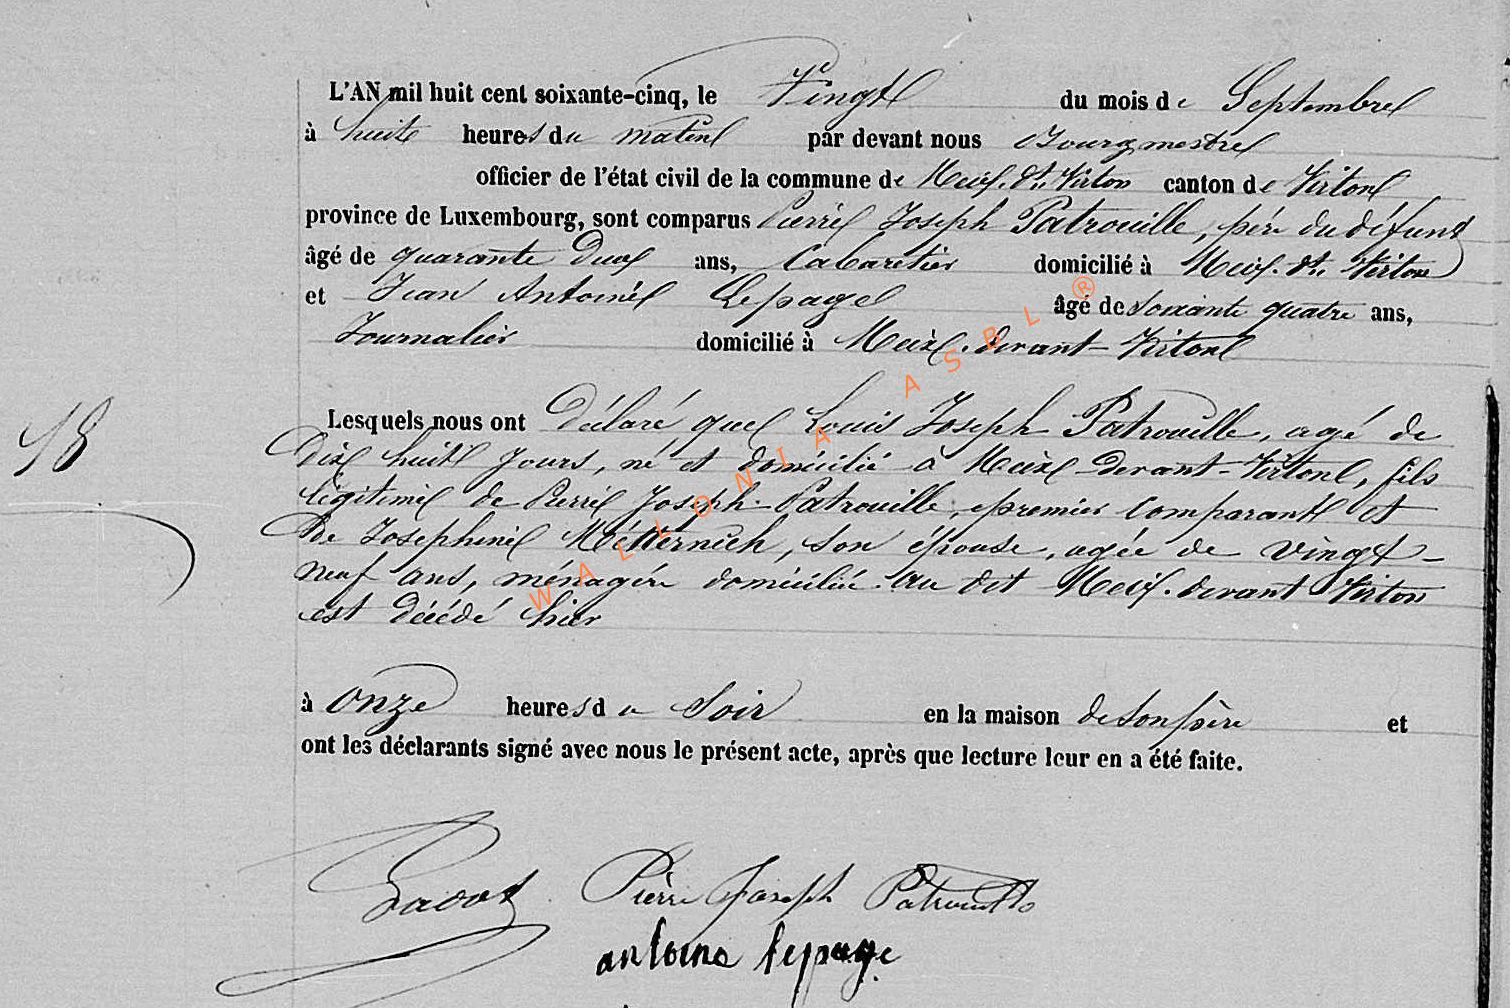 L'AN mil huit cent soixante-cinq, le Vingt du mois de Septembre
à huite heures du matin par devant nous Bourgmestre
officier de l'état civil de la commune de Meix-dt-Virton canton de Virton
province de Luxembourg, sont comparus Pierre Joseph Patrouille, père du défunt
âgé de quarante Deux ans, Cabaretier domicilié à Meix-dt-Virton
et Jean Antoine Lepage âgé de soixante quatre ans,
Journalier domicilié à Meix-devant-Virton
18
Lesquels nous ont Déclaré que Louis Joseph Patrouille, agé de
Dix huit jours, né et domicilié à Meix Devant-Virton, fils
légitime de Pierre Joseph Patrouille, premier Comparant et
De Josephine Métternich, son épouse, agée de vingt-
neuf ans, ménagère domiciliée au dit Meix-devant Virton
est décédé hier
à onze heures du Soir en la maison de son père et
ont les déclarants signé avec nous le présent acte, après que lecture leur en a été faite.
Pierre Joseph Patrouille
antoine lepage
WALLONIA ASBL ®